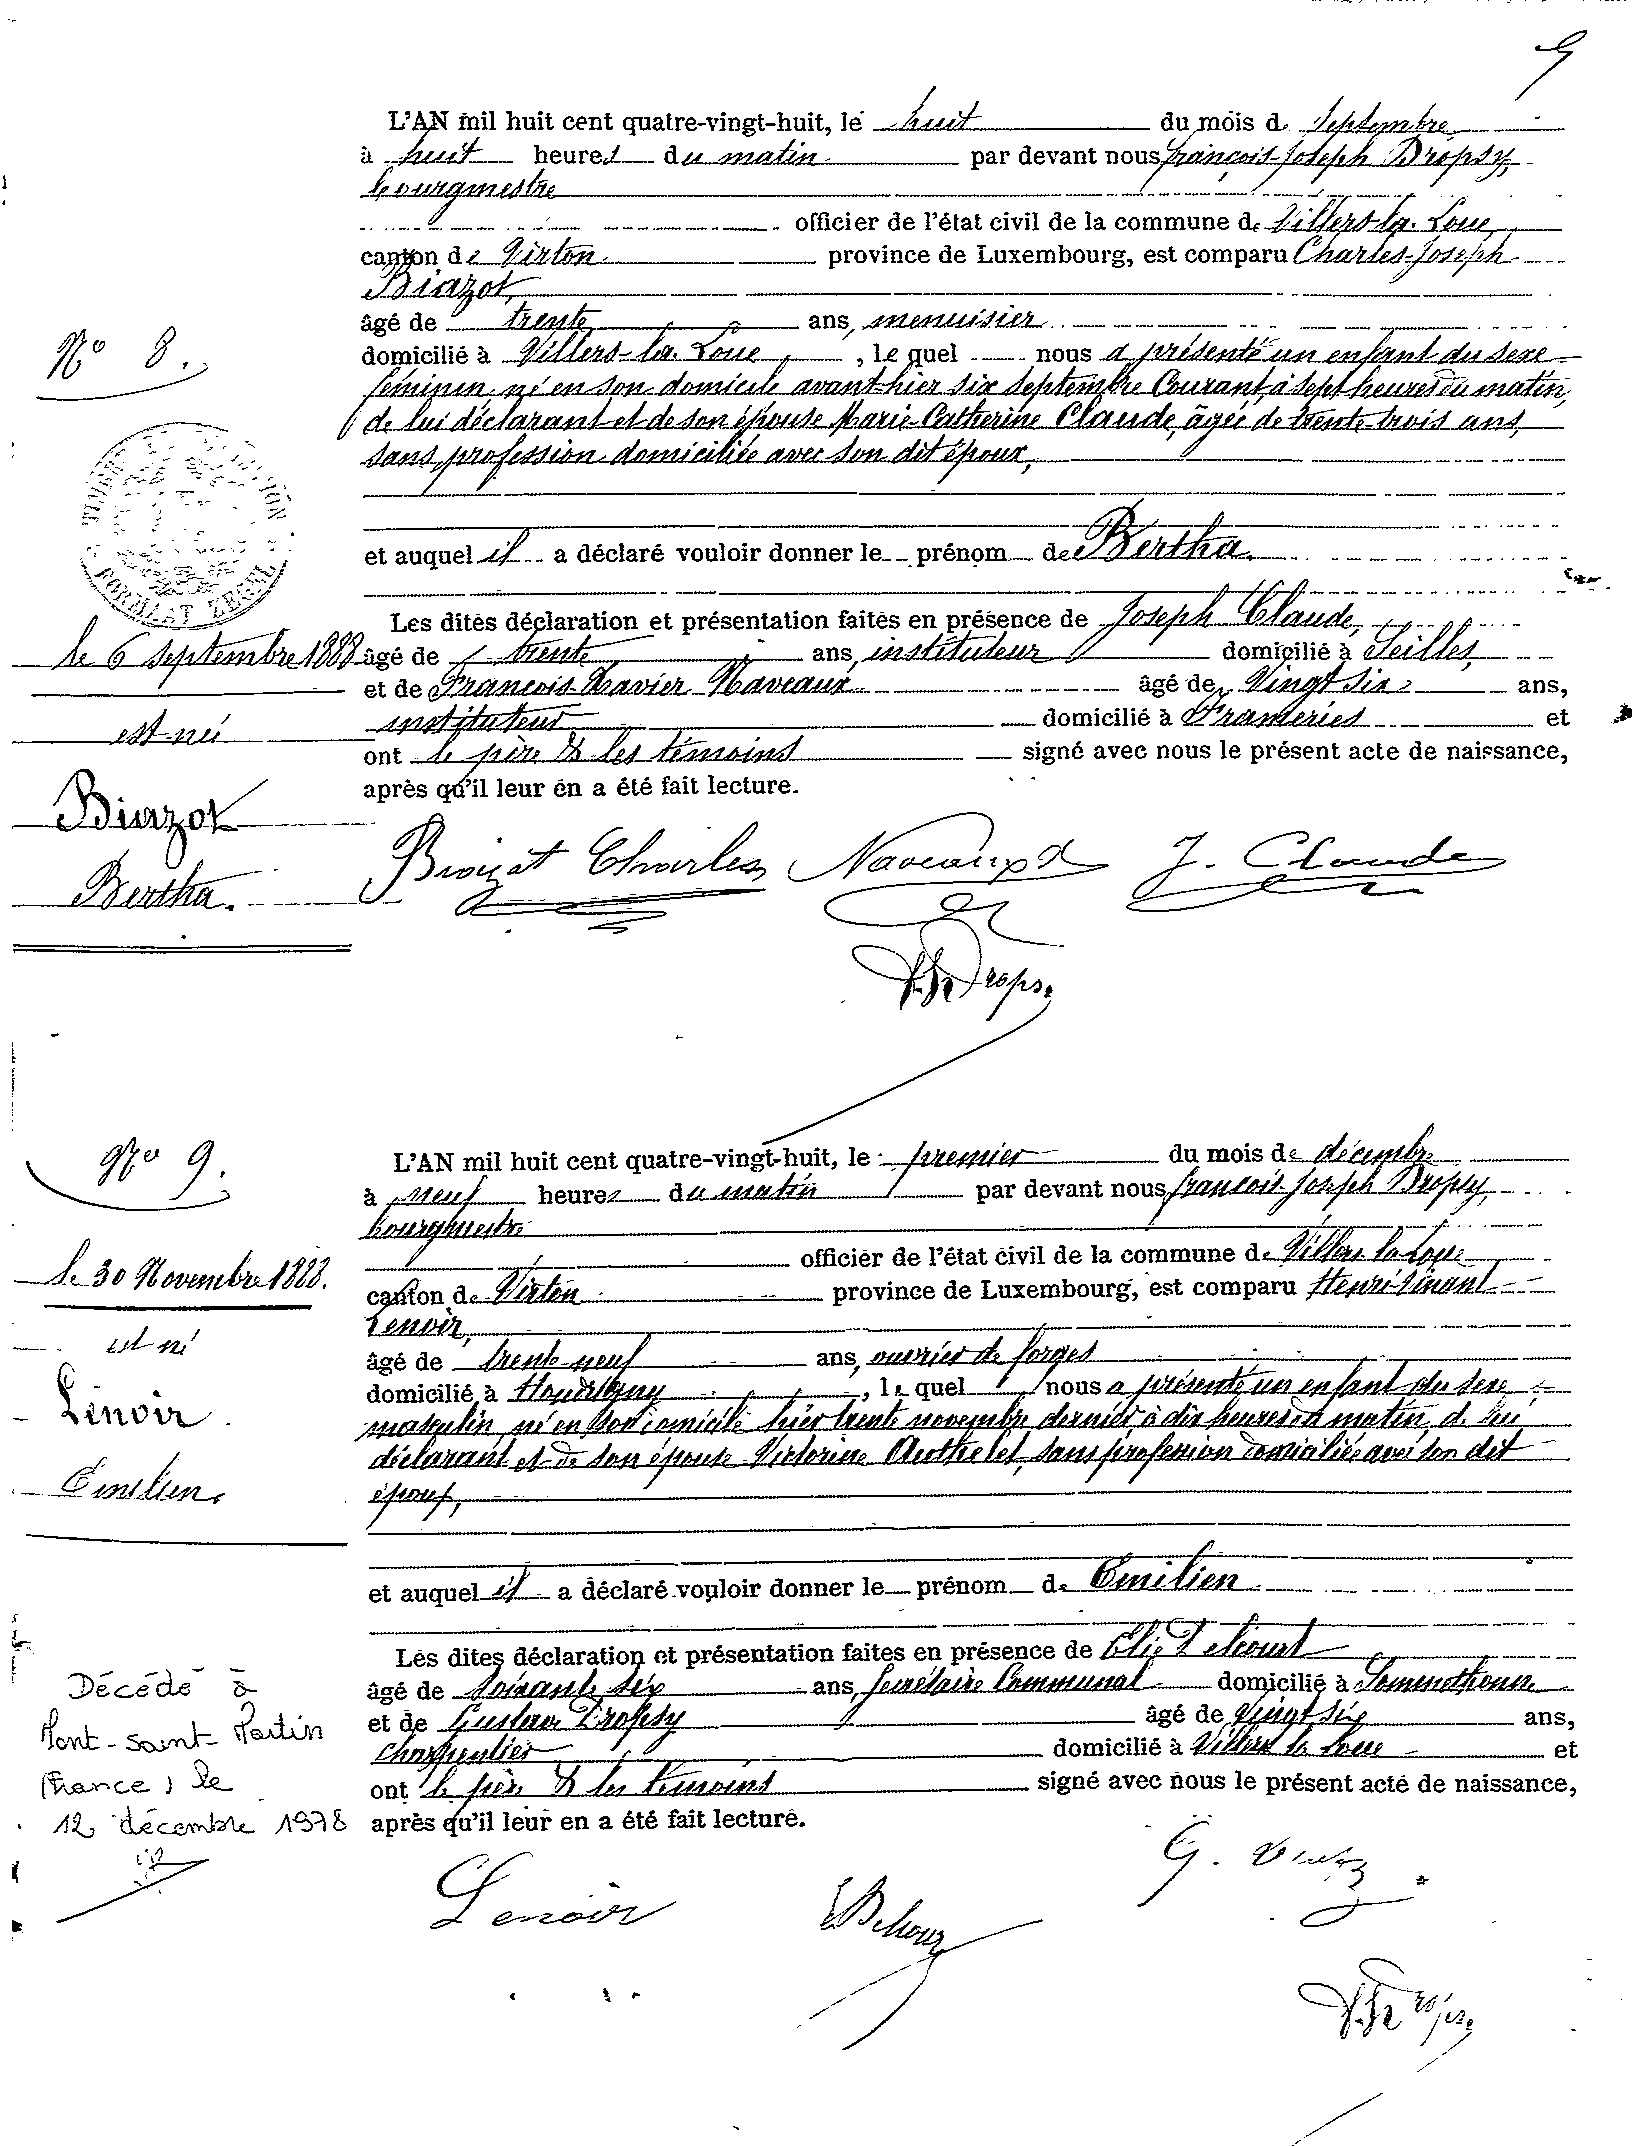 5
L'AN mil huit cent quatre-vingt-huit, le huit du mois de septembre
à huit heures du matin par devant nous françois-Joseph Dropsy,
bourgmestre
officier de l'état civil de la commune de Villers-la-Loue,
canton de Virton province de Luxembourg, est comparu Charles-Joseph
Biazot,
âgé de trente ans, menuisier
domicilié à Villers-la-Loue, le quel nous a présenté un enfant du sexe
féminin, né en son domicile avant-hier six septembre Courant, à sept heures du matin,
de lui déclarant et de son épouse Marie-Catherine Claude, âgée de trente-trois ans,
sans profession domiciliée avec son dit époux,
et auquel il a déclaré vouloir donner le prénom de Bertha.
Les dites déclaration et présentation faites en présence de Joseph Claude,
âgé de trente ans, instituteur domicilié à Seilles,
et de François-Xavier Naveaux âgé de Vingt six ans,
instituteur domicilié à Frameries et
ont le père & les témoins signé avec nous le présent acte de naissance,
après qu'il leur en a été fait lecture.
N° 8.
FORMAAT ZEGEL
le 6 septembre 1888
est né
Biazot
Bertha.
Biazot Charles Naveaux J. Claude
Dropsy
N° 9.
le 30 Novembre 1888.
est né
Lenoir
Emilien.
L'AN mil huit cent quatre-vingt-huit, le premier du mois de décembre
à neuf heures du matin par devant nous françois-Joseph Dropsy,
bourgmestre
officier de l'état civil de la commune de Villers-la-Loue
canton de Virton province de Luxembourg, est comparu Henri-
Lenoir,
âgé de trente-neuf ans, ouvrier de forges
domicilié à Houdrigny, le quel nous a présenté un enfant du sexe
masculin, né en son domicile hier trente novembre dernier, à dix heures du matin, de lui
déclarant et de son épouse Victorine sans profession domiciliée avec son dit
époux,
et auquel il a déclaré vouloir donner le prénom de Emilien
Les dites déclaration et présentation faites en présence de Elie
âgé de soixante six ans, secrétaire Communal domicilié à Sommethonne
et de Gustave Dropsy âgé de vingt six ans,
charpentier domicilié à Villers la Loue et
ont le père & les témoins signé avec nous le présent acte de naissance,
après qu'il leur en a été fait lecture.
Décédé à
Mont-saint-Martin
(France) le
12 décembre 1978
Lenoir
G.